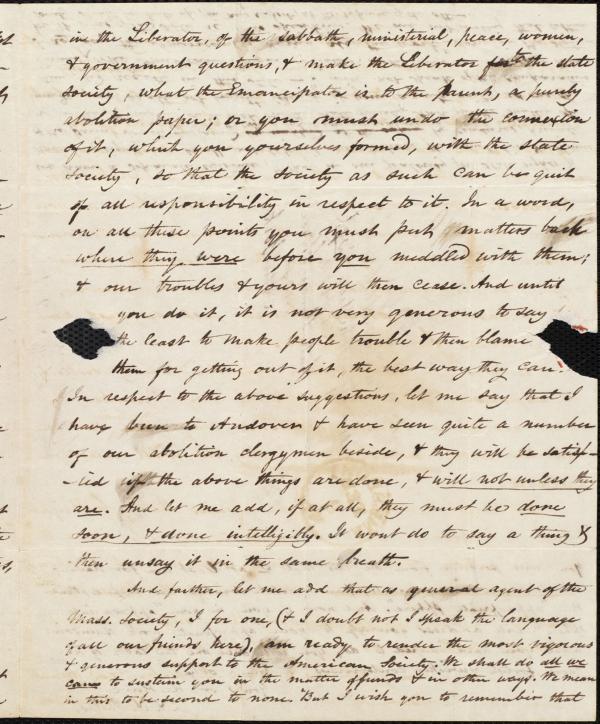 in the Liberator, of the Sabbath, ministerial, peace, women,
& government questions, & make the Liberator to the state
society, what the Emancipator is to the Parent, a purely
abolition paper; or you must undo the connexion
of it, which you yourselves formed, with the state
society, so that the society as such can be quit
of all responsibility in respect to it. In a word,
on all these points you must put matters back
where they were before you meddled with them;
& our troubles & yours will then cease. And until
you do it, it is not very generous to say
the least to make people trouble & then blame
them for getting out of it, the best way they can.
In respect to the above suggestions, let me say that I
have been to Andover & have seen quite a number
of our abolition clergymen beside, & they will be satisf-
-ied if the above things are done, & will not unless they
are. And let me add, if at all, they must be done
soon, & done intelligibly. It wont do to say a thing &
then unsay it in the same breath.
And farther, let me add that as general agent of the
Mass. Society, I for one, (& I doubt not I speak the language
of all our friends here), am ready to render the most vigorous
& generous support to the American Society. We shall do all we
can to sustain you in the matter of funds & in other ways. We mean
in this to be second to none. But I wish you to remember that